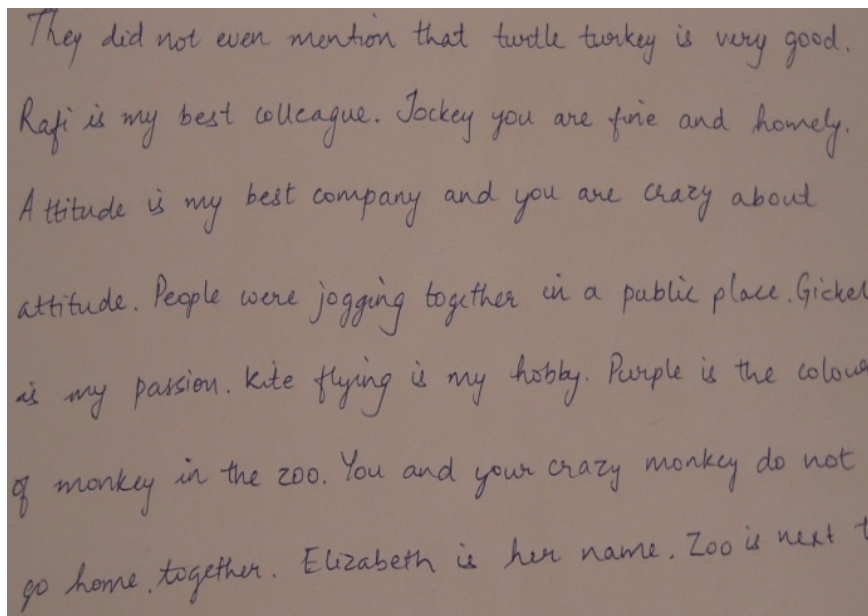 They did not even mention that turtle turkey is very good.
Rafi is my best colleague. Jockey you are fine and homely.
Attitude is my best company and you are crazy about
attitude. People were jogging together in a public place. Gickel
is my passion. Kite flying is my hobby. Purple is the colou
of monkey in the zoo. You and your crazy monkey do not
go home. together. Elizabeth is her name. Zoo is next t